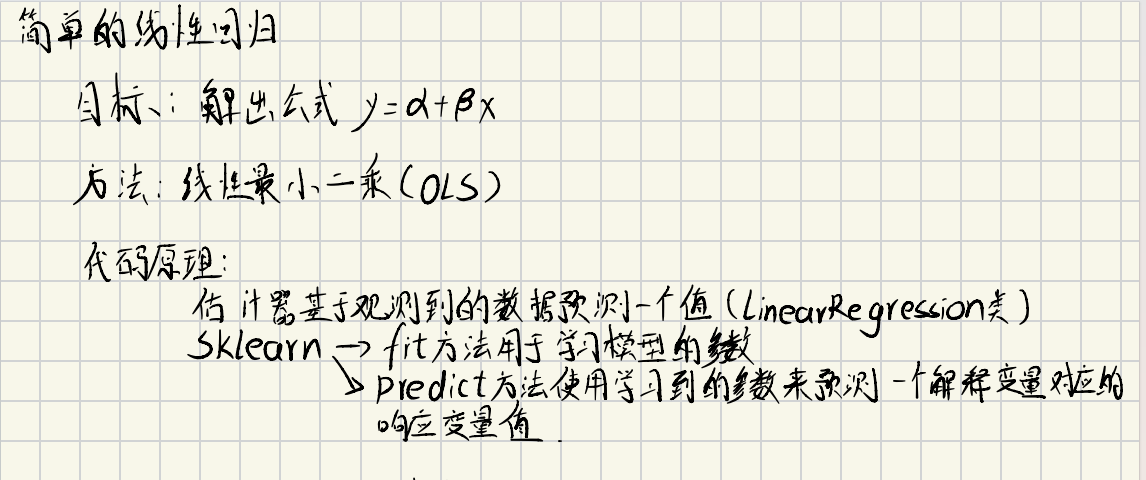 简单的线性回归
目标：解出公式 y=α+βx
方法：线性最小二乘(OLS)
代码原理：
估计器基于观测到的数据预测一个值(LinearRegression类)
Sklearn → fit方法用于学习模型的参数
↘ predict方法使用学习到的参数来预测一个解释变量对应的
响应变量值.